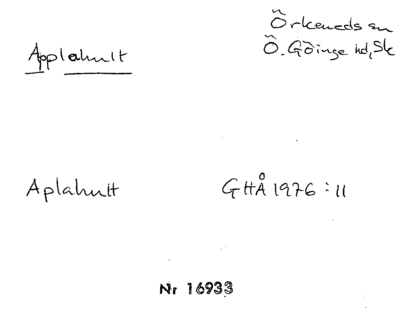 Örkeneds sn
Applahult
Ö. Göinge hd, Sk
Aplahult GHÅ 1976:11
Nr 16933